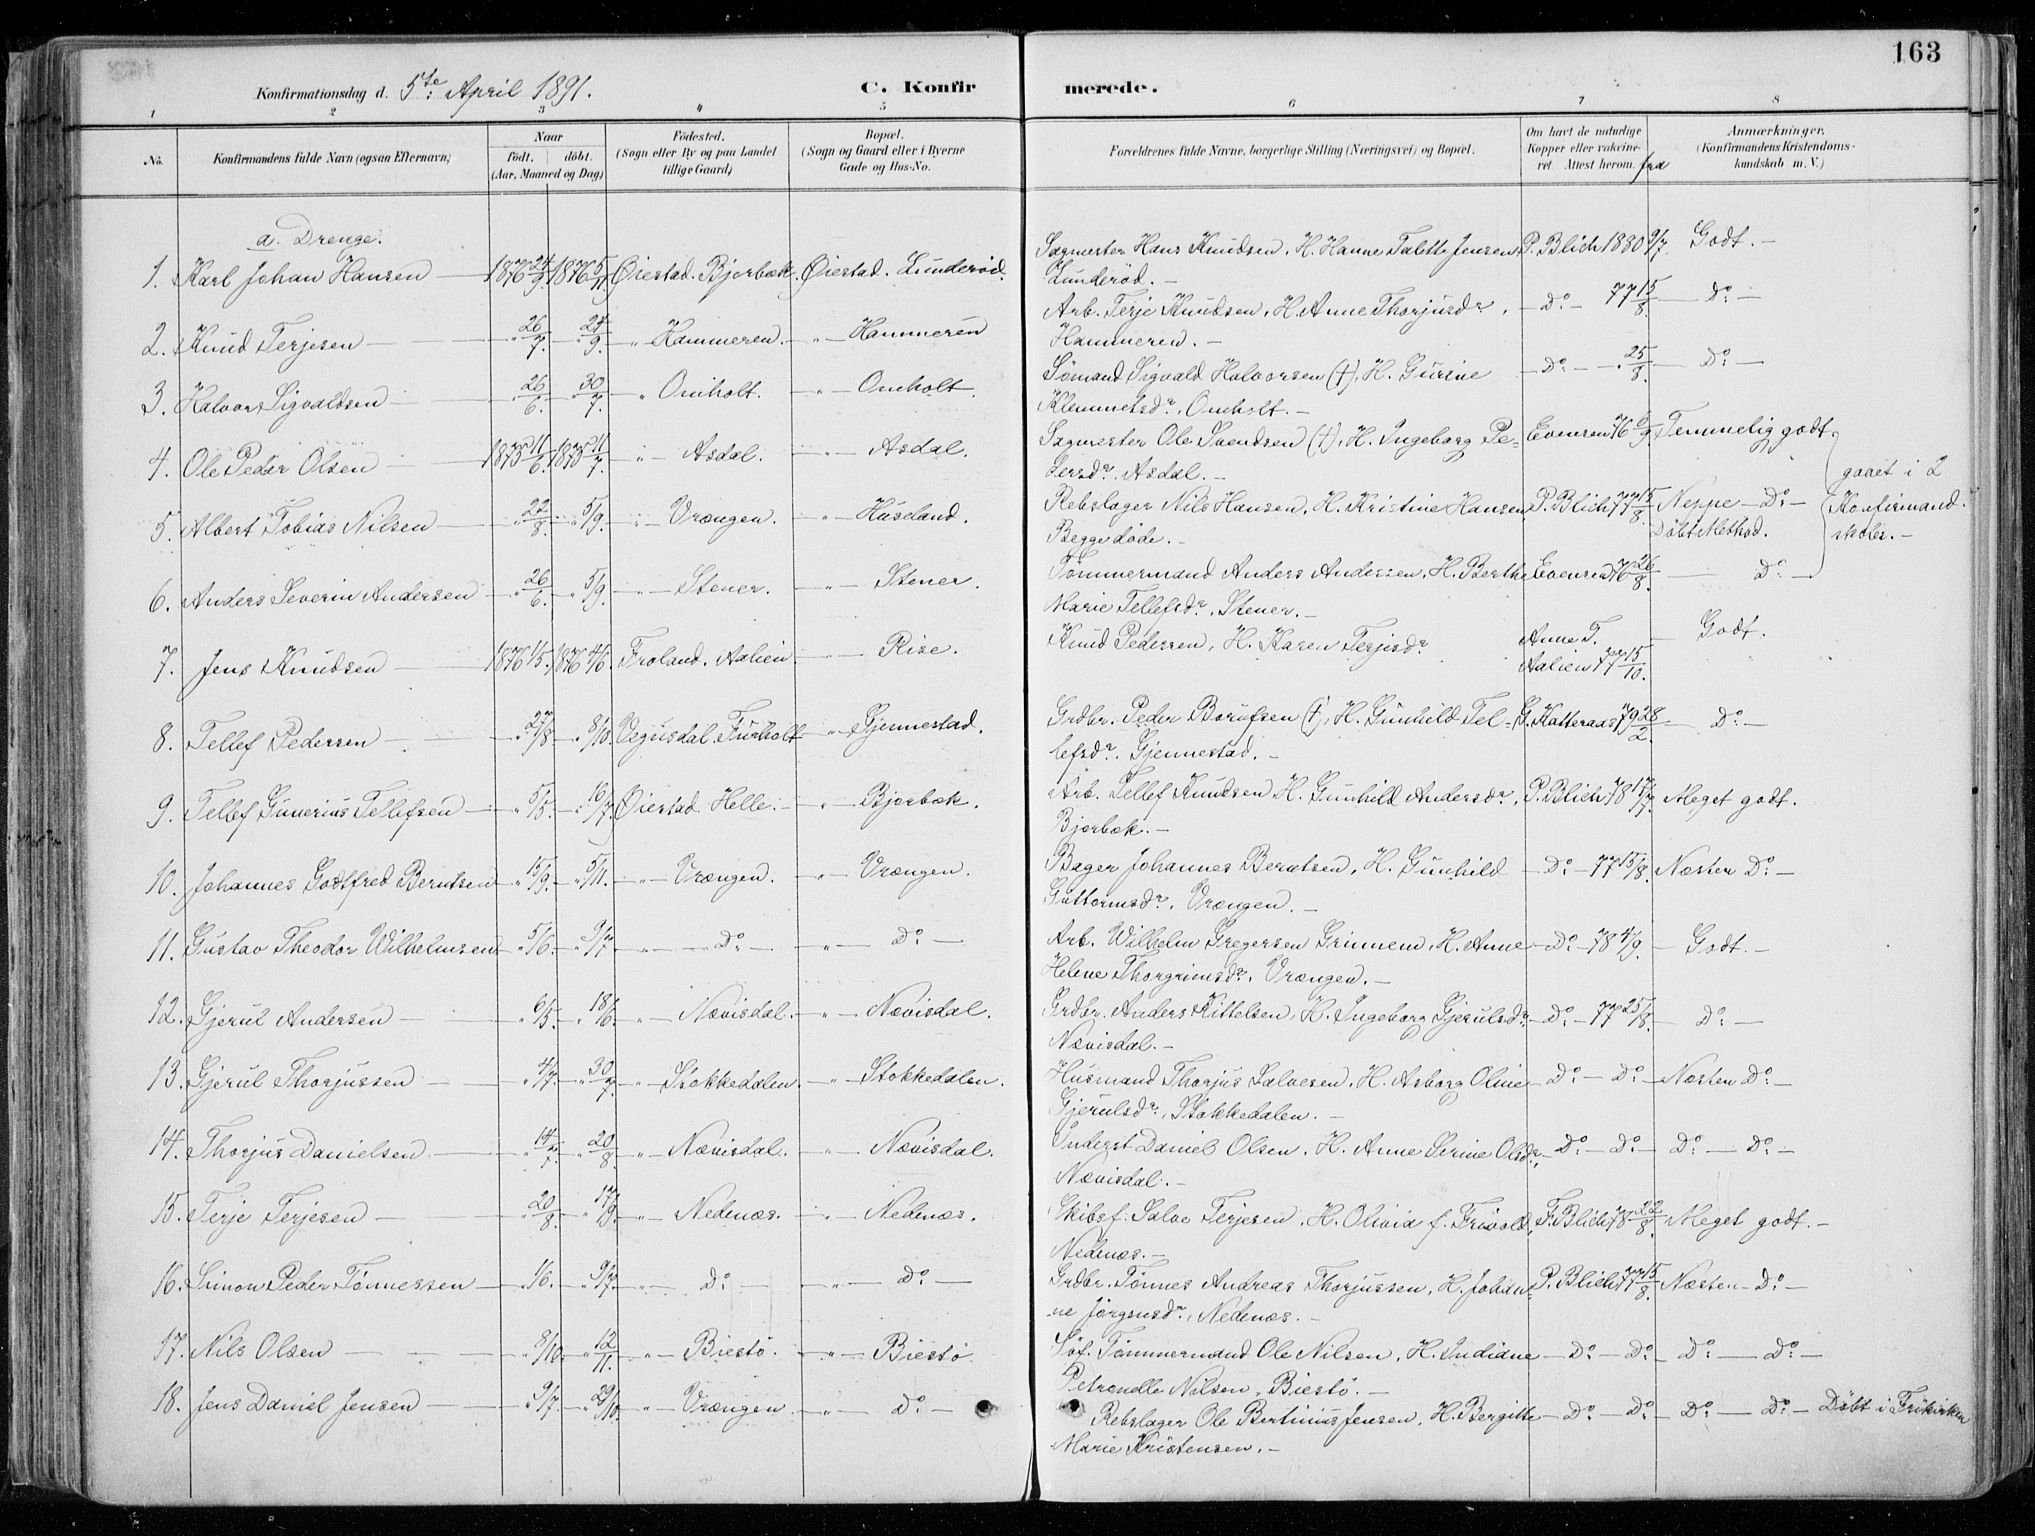 163
Konfirmationsdag d. 5te April 1891. C. Konfirmerede.
1 2 3 4 5 6 7 8
No. Konfirmandens fulde Navn (ogsaa Efternavn) Naar født. døbt. (Aar, Maaned og Dag) Födested. (Sogn eller By og paa Landet tillige Gaard) Bopæl. (Sogn og Gaard eller i Byerne Gade og Hus-No. Forældrenes fulde Navne, borgerlige Stilling (Næringsvei) og Bopæl. Om havt de naturlige Kopper eller vakcineret Attest herom. fra Anmærkninger. (Konfirmandens Kristendomskundskab m. V.)
a. Drenge.
1. Karl Johan Hansen — 1876 24/9. 1876 5/11. Øiestad. Bjorbæk. Øiestad. Lunderød. Sagmester Hans Knudsen, H. Hanne Talette Jensen P. Blich 1880 9/7. Godt. —
Lunderød. —
2. Knud Terjesen — " 26/7. " 24/9. " — Hammeren. " — Hammeren Arb. Terje Knudsen, H. Anne Thorjusdr. — Do — 77 15/8. — Do —
Hammeren. —
3. Halvor Sigvaldsen — " 26/6. " 30/7. " Omholt. " — Omholt. Sømand Sigvald Halvorsen (†), H. Gurine — Do — " 25/8. — Do —
Klemmetsdr., Omholt. —
4. Ole Peder Olsen — 1875 11/6. 1875 11/7. " — Asdal. " — Asdal. Sagmester Ole Svendsen (†), H. Ingeborg Pe- Evensen 76 6/9. Temmelig godt
dersdr. Asdal. — gaaet i 2
5. Albert Tobias Nilsen — " 22/8. " 5/9. " — Vrængen. " — Huseland. Rebslager Nils Hansen, H. Kristine Hansen P. Blich 77 15/8. Neppe — Do — Konfirmand.
Begge døde. — Døbt Method. skoler. —
6. Anders Severin Andersen — " 26/6. " 5/9. " — Stener. " — Stener. Tømmermand Anders Andersen, H. Berthe Evensen 76 26/8. — Do —
Marie Tellefsdr., Stener. —
7. Jens Knudsen — 1876 1/5. 1876 4/6. Froland. Aalien " — Rise. Knud Pedersen, H. Karen Terjesdr. Anne T. — Godt.
Aalien 77 15/10.
8. Tellef Pedersen — " 27/8 " 8/10. Vegusdal. Furholt " Gjennestad. Grdbr. Peder Borufsen (†), H. Gunhild Tel- G. Katteraas 79 28/2. — Do —
lefsdr. Gjennestad. —
9. Tellef Gunerius Tellefsen — " 5/5. " 16/7 Øiestad. Helle. — " — Bjorbæk. Arb. Tellef Knudsen H. Gunhild Andersdr., P. Blich 78 17/7. Meget godt.
Bjorbæk. —
10. Johannes Godtfred Berntsen " 15/9. " 5/11. " — Vrængen. " — Vrængen. Bager Johannes Berntsen, H. Gunhild — Do — 77 15/8. Næsten Do —
Guttormsdr., Vrængen. —
11. Gustav Theodor Wilhelmsen " 5/6. " 9/7 " — Do — " — Do — Arb. Wilhelm Gregersen Grinnem, H. Anne — Do — 78 4/9. — Godt. —
Helene Thorgrimsdr., Vrængen. —
12. Gjerul Andersen — " 6/5. " 18/6 " — Nævisdal. — " — Nævisdal. Grdbr. Anders Kittelsen, H. Ingeborg Gjerulsdr. — Do — 77 25/8. — Do —
Nævisdal. —
13. Gjerul Thorjussen — " 4/7. " 30/7. " — Stokkedalen. " — Stokkedalen. Husmand Thorjus Salvesen, H. Asborg Oline — Do — Do — Næsten Do —
Gjerulsdr., Stokkedalen. —
14. Thorjus Danielsen — " 14/7. " 20/8. " — Nævisdal. " — Nævisdal. Inderst Daniel Olsen, H. Anne Serine Olsdr., — Do — Do — Do — Do —
Nævisdal. —
15. Terje Terjesen — " 20/8. " 17/9. " — Nedenæs. " — Nedenæs. Skibsf. Salve Terjesen, H. Olivia f. Frivold, F. Blich 78 22/8. Meget godt. —
Nedenæs. —
16. Simon Peder Tønnessen — " 1/6. " 9/7. " — Do — " — Do — Grdbr. Tønnes Andreas Thorjussen, H. Johan- P. Blich 77 15/8. Næsten — Do —
ne Jørgensdr., Nedenæs. —
17. Nils Olsen — " 8/10. " 12/11. " — Biestø. " — Biestø Søf. Tømmermand Ole Nilsen, H. Indiane — Do — Do — Do — Do —
Petronelle Nilsen, Biestø. —
18. Jens Daniel Jensen — " 9/7. " 29/10. " — Vrængen. " — Do — Rebslager Ole Bertinius Jensen, H. Bergitte — Do — Do — Do — Do — Døbt i Frikirken
Marie Kristensen. —